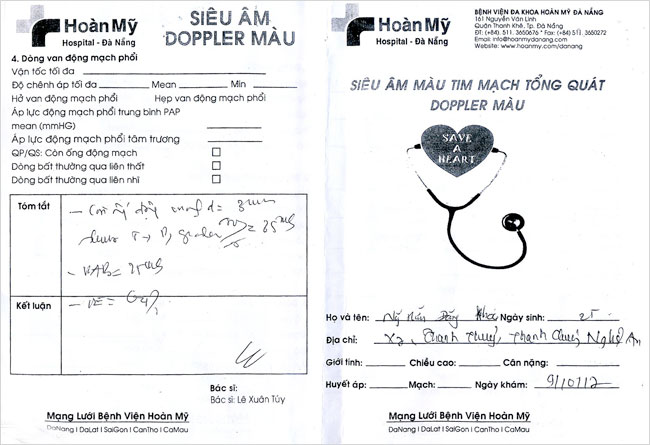 Hoàn Mỹ
Hospital - Đà Nẵng
SIÊU ÂM
DOPPLER MÀU
4. Dòng van động mạch phổi
Vận tốc tối đa
Độ chênh áp tối đa Mean Min
Hở van động mạch phổi Hẹp van động mạch phổi
Áp lực động mạch phổi trung bình PAP
mean (mmHG)
Áp lực động mạch phổi tâm trương
QP/QS: Còn ống động mạch
Dòng bất thường qua liên thất
Dòng bất thường qua liên nhĩ
Tóm tắt
- Còn ống động mạch d = 3mm
Kết luận
Bác sĩ:
Bác sĩ: Lê Xuân Túy
Mạng Lưới Bệnh Viện Hoàn Mỹ
DaNang I DaLat I SaiGon I CanTho I CaMau
Hoàn Mỹ
Hospital - Đà Nẵng
BỆNH VIỆN ĐA KHOA HOÀN MỸ ĐÀ NẴNG
161 Nguyễn Văn Linh
Quận Thanh Khê, Tp. Đà Nẵng
ĐT: (+84). 511. 3650676 * Fax: (+84) 511. 3650272
Email: info@hoanmydanang.com
Website: www.hoanmy.com/danang
SIÊU ÂM MÀU TIM MẠCH TỔNG QUÁT
DOPPLER MÀU
SAVE
A
HEART
Họ và tên: Đăng Khoa Ngày sinh: 25
Địa chỉ: Thanh Thuỷ, Thanh Chương, Nghệ An
Giới tính: Chiều cao: Cân nặng:
Huyết áp: Mạch: Ngày khám: 9/10/12
Mạng Lưới Bệnh Viện Hoàn Mỹ
DaNang I DaLat I SaiGon I CanTho I CaMau